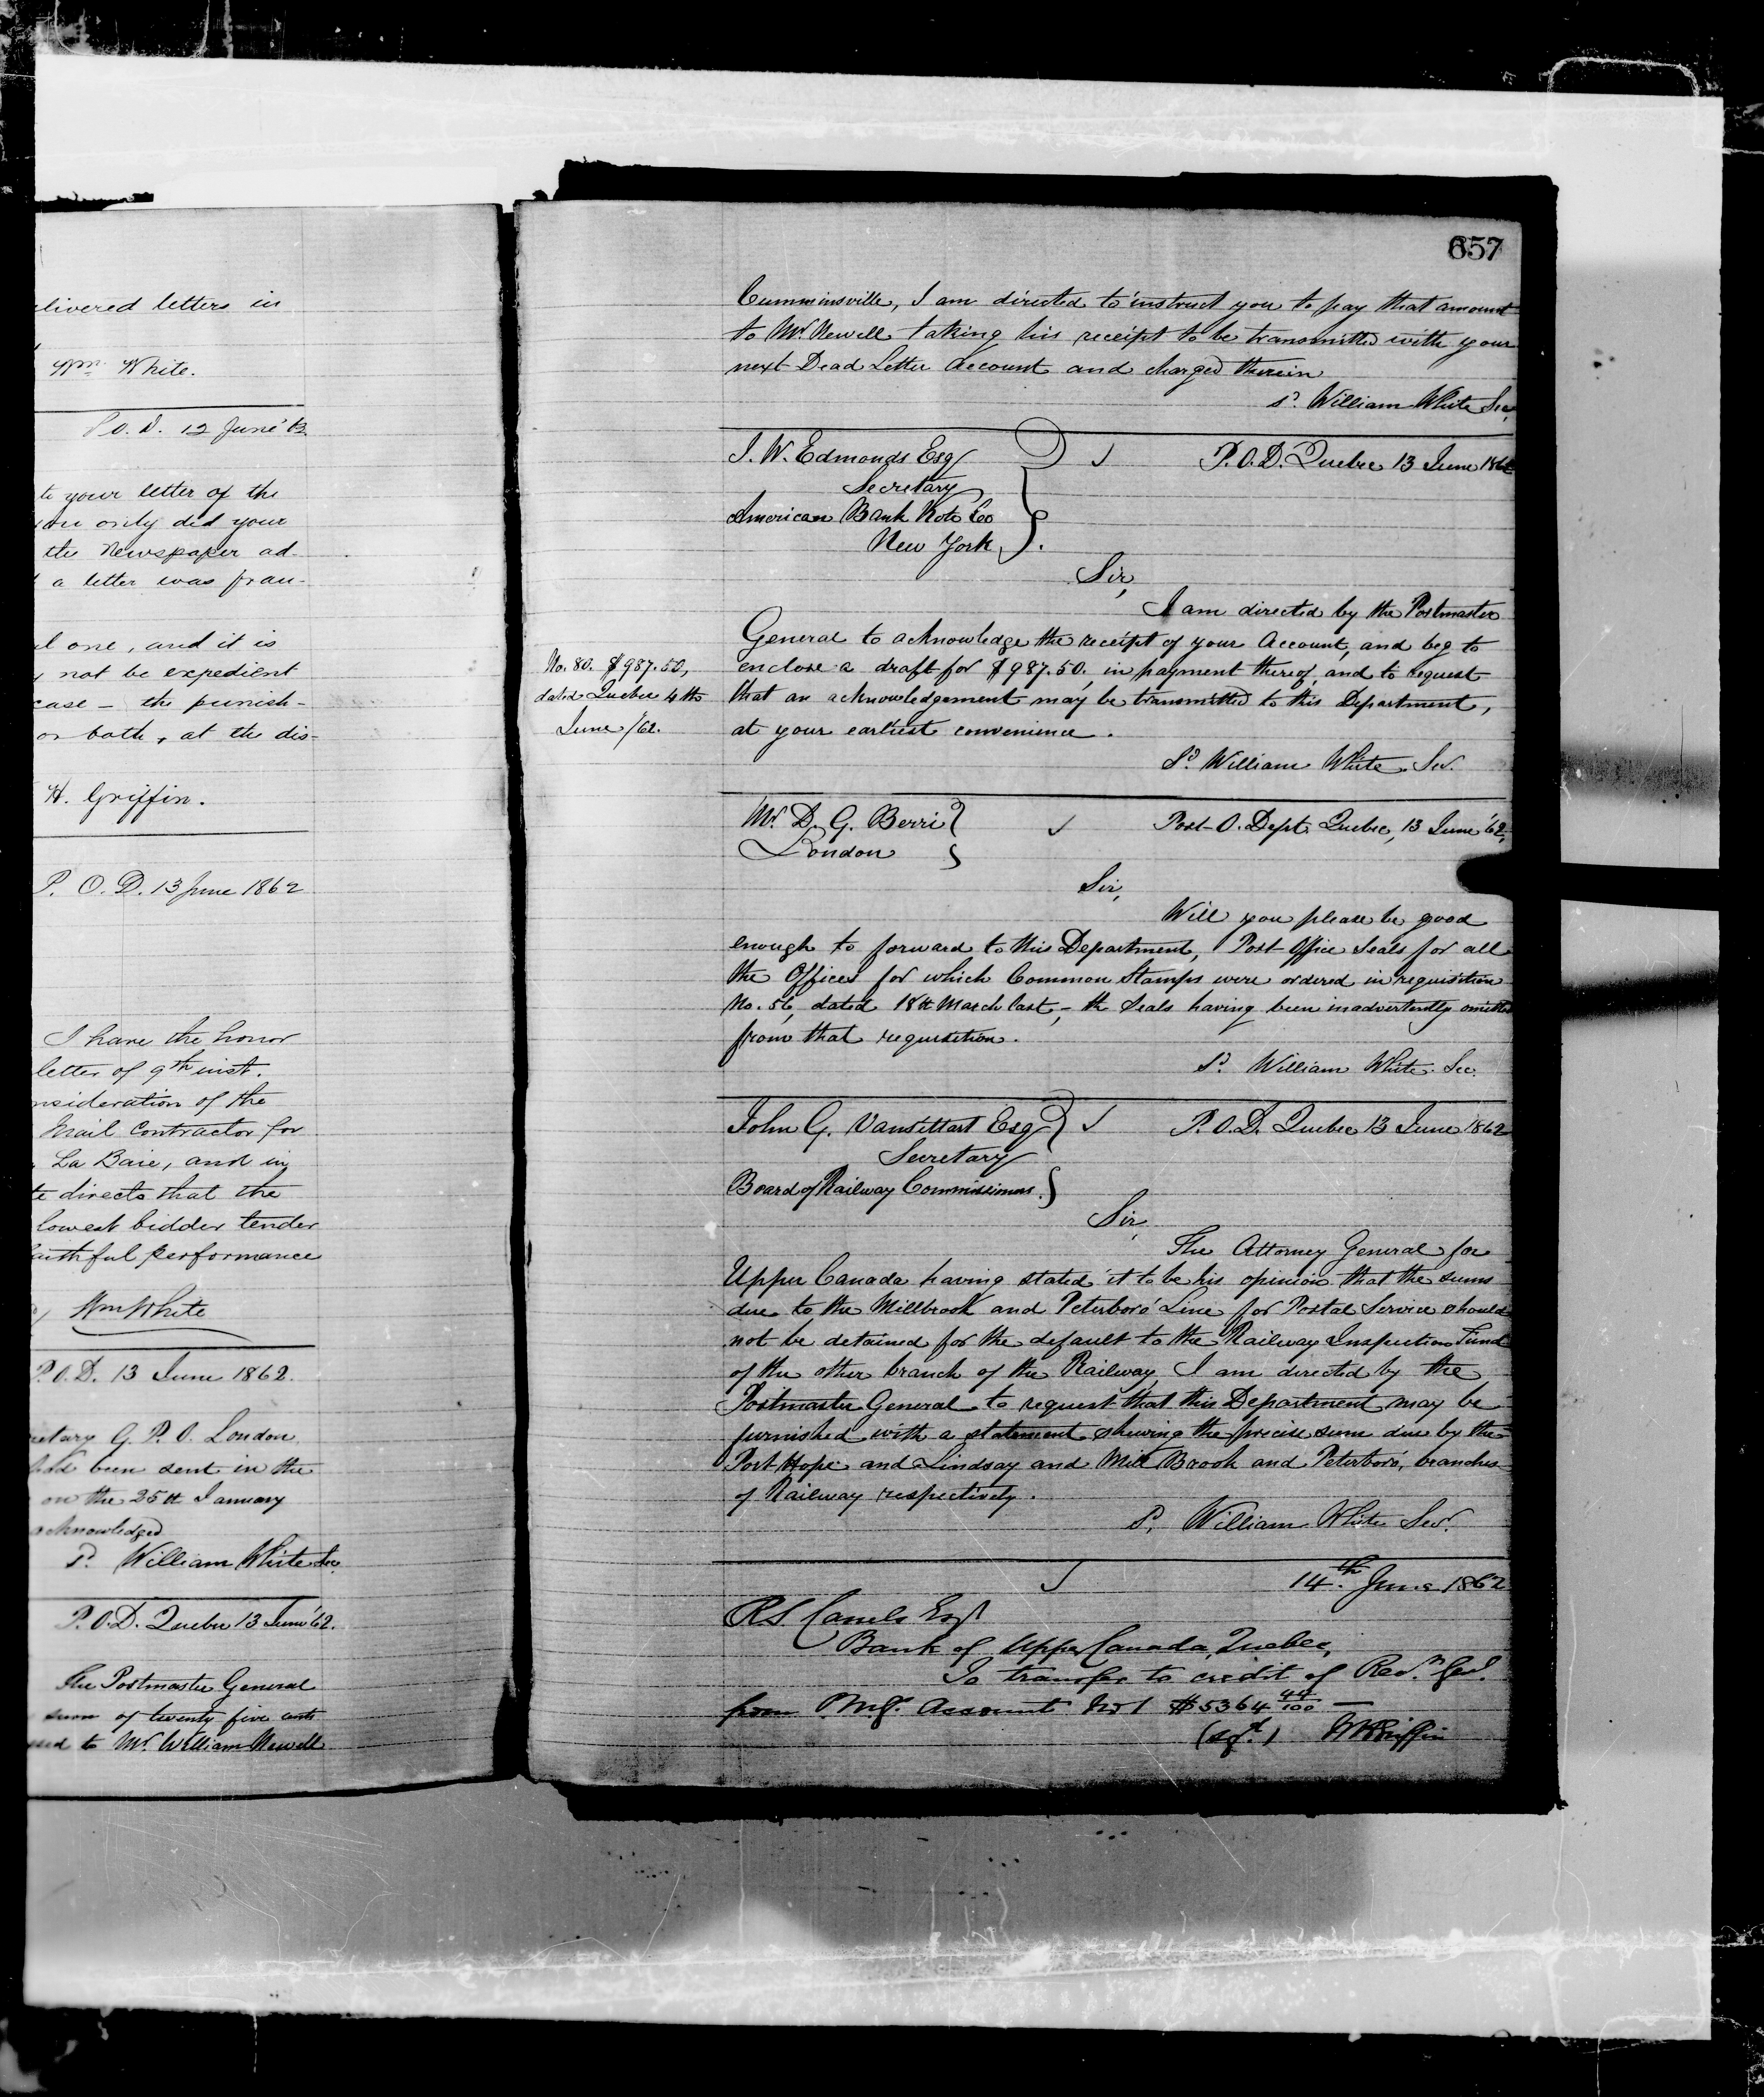 livered letters in
Wm. White.
P.O.D. 12 June
to your letter of the
only did your
the Newspaper ad-
a letter was frau-
l one, and it is
not be expedient
case - the punish-
or both, at the dis-
H. Griffin.
P. O. D. 13 June 1862
I have the honor
letter of 9th inst.
nsideration of the
Mail Contractor for
La Baie, and in
te directs that the
lowest bidder tender
faithful performance
Wm White
P.O.D. 13 June 1862.
retary G. P. O. London
had been sent in the
on the 25th January
acknowledged
sd. William White Sec.
P.O.D. Quebec 13 June '62.
The Postmaster General
sum of twenty five cents
to Mr. William Newell
657
Cumminsville, I am directed to instruct you to pay that amount
to Mr. Newell taking his receipt to be transmitted with your
next Dead Letter Account and charged therein
sd. William White Sec.
J. W. Edmonds Esq P.O.D. Quebec 13 June 1862
Secretary
American Bank Note Co
New York.
Sir,
I am directed by the Postmaster
General to acknowledge the receipt of your Account, and beg to
enclose a draft for $987.50. in payment thereof, and to request
that an acknowledgement may be transmitted to this Department,
at your earliest convenience.
No. 80. $987.50,
dated Quebec 4th
June /62.
Sd. William White Sec.
Mr. D. G. Berri Post-O. Dept. Quebec, 13 June '62,
London
Sir,
Will you please be good
enough to forward to this Department, Post Office Seals for all
the Offices for which Common Stamps were ordered in requisition
No. 56, dated 18th March last, - the Seals having been inadvertently omitted
from that requisition.
sd. William White. Sec.
John G. Vansittart Esq P.O.D. Quebec 13 June 1862
Secretary
Board of Railway Commissioners.
Sir,
The Attorney General for
Upper Canada having stated it to be his opinion that the sums
due to the Millbrook and Peterboro' Line for Postal Service should
not be detained for the default to the Railway Inspection Fund
of the other branch of the Railway, I am directed by the
Postmaster General to request that this Department may be
furnished with a statement shewing the precise sum due by the
Port Hope and Lindsay and Mill Brook and Peterboro', branches
of Railway respectively.
sd. William White Sec.
14.th June 1862
R.S. Cassels Esqr
Bank of Upper Canada, Quebec,
To transfer to credit of Recr. Genl.
from P.M.G. Account No 1 $5364 44/100 —
(sgd.) WHGriffin